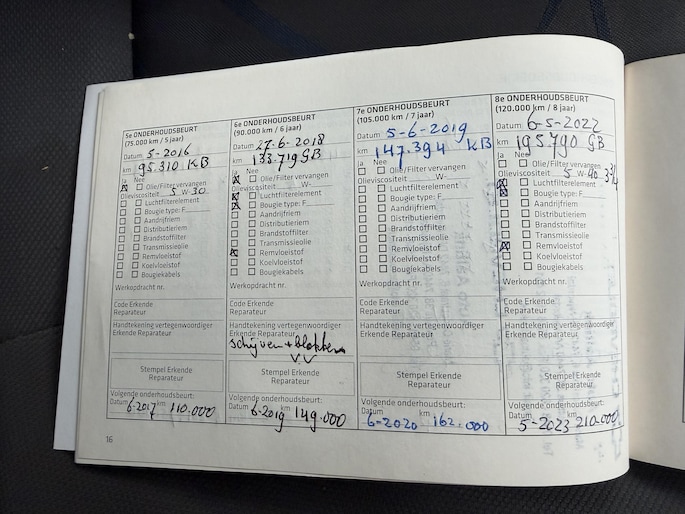 5e ONDERHOUDSBEURT
(75.000 km / 5 jaar)
Datum 5-2016
km 95.310 KB
Ja Nee
Olie/Filter vervangen
Olieviscositeit 5 W 30
Luchtfilterelement
Bougie type: F
Aandrijfriem
Distributieriem
Brandstoffilter
Transmissieolie
Remvloeistof
Koelvloeistof
Bougiekabels
Werkopdracht nr.
Code Erkende
Reparateur
Handtekening vertegenwoordiger
Erkende Reparateur
Stempel Erkende
Reparateur
Volgende onderhoudsbeurt:
Datum 6-2017 km 110.000
16
6e ONDERHOUDSBEURT
(90.000 km / 6 jaar)
Datum 27-6-2018
km 133.719 GB
Ja Nee
Olie/Filter vervangen
Olieviscositeit W-
Luchtfilterelement
Bougie type: F
Aandrijfriem
Distributieriem
Brandstoffilter
Transmissieolie
Remvloeistof
Koelvloeistof
Bougiekabels
Werkopdracht nr.
Code Erkende
Reparateur
Handtekening vertegenwoordiger
Erkende Reparateur
schijven + blokken
Stempel Erkende
Reparateur
Volgende onderhoudsbeurt:
Datum 6-2019 km 149.000
7e ONDERHOUDSBEURT
(105.000 km / 7 jaar)
Datum 5-6-2019
km 147.394 KB
Ja Nee
Olie/Filter vervangen
Olieviscositeit W-
Luchtfilterelement
Bougie type: F
Aandrijfriem
Distributieriem
Brandstoffilter
Transmissieolie
Remvloeistof
Koelvloeistof
Bougiekabels
Werkopdracht nr.
Code Erkende
Reparateur
Handtekening vertegenwoordiger
Erkende Reparateur
Stempel Erkende
Reparateur
Volgende onderhoudsbeurt:
Datum 6-2020 km 162.000
8e ONDERHOUDSBEURT
(120.000 km / 8 jaar)
Datum 6-5-2022
km 195.790 GB
Ja Nee
Olie/Filter vervangen
Olieviscositeit 5 W- 40
Luchtfilterelement
Bougie type: F
Aandrijfriem
Distributieriem
Brandstoffilter
Transmissieolie
Remvloeistof
Koelvloeistof
Bougiekabels
Werkopdracht nr.
Code Erkende
Reparateur
Handtekening vertegenwoordiger
Erkende Reparateur
Stempel Erkende
Reparateur
Volgende onderhoudsbeurt:
Datum 5-2023 km 210.000